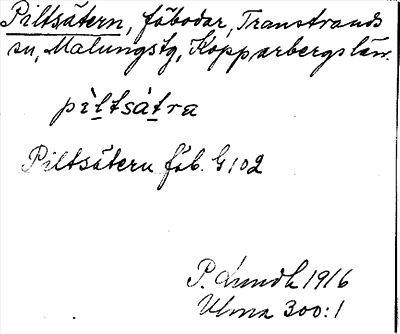 Piltsätern, fäbodar, Transtrands
sn, Malungs tg, Kopparbergs län.
pìltsàtra
Piltsätern fäb. G102
P. Lundh 1916
Ulma 300:1